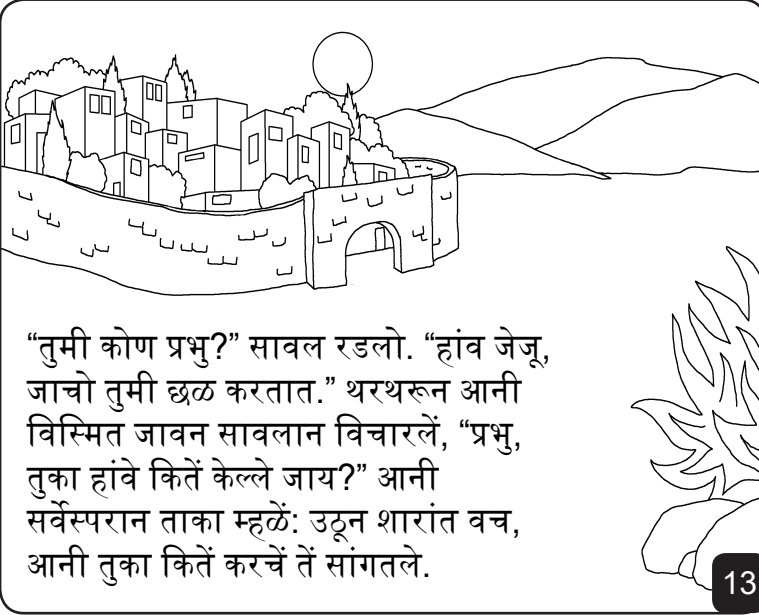 “तुमी कोण प्रभु?” सावल रडलो. “हांव जेजू,
जाचो तुमी छळ करतात.” थरथरून आनी
विस्मित जावन सावलान विचारलें, “प्रभु,
तुका हांवे कितें केल्ले जाय?” आनी
सर्वेस्परान ताका म्हळें: उठून शारांत वच,
आनी तुका कितें करचें तें सांगतले.
13